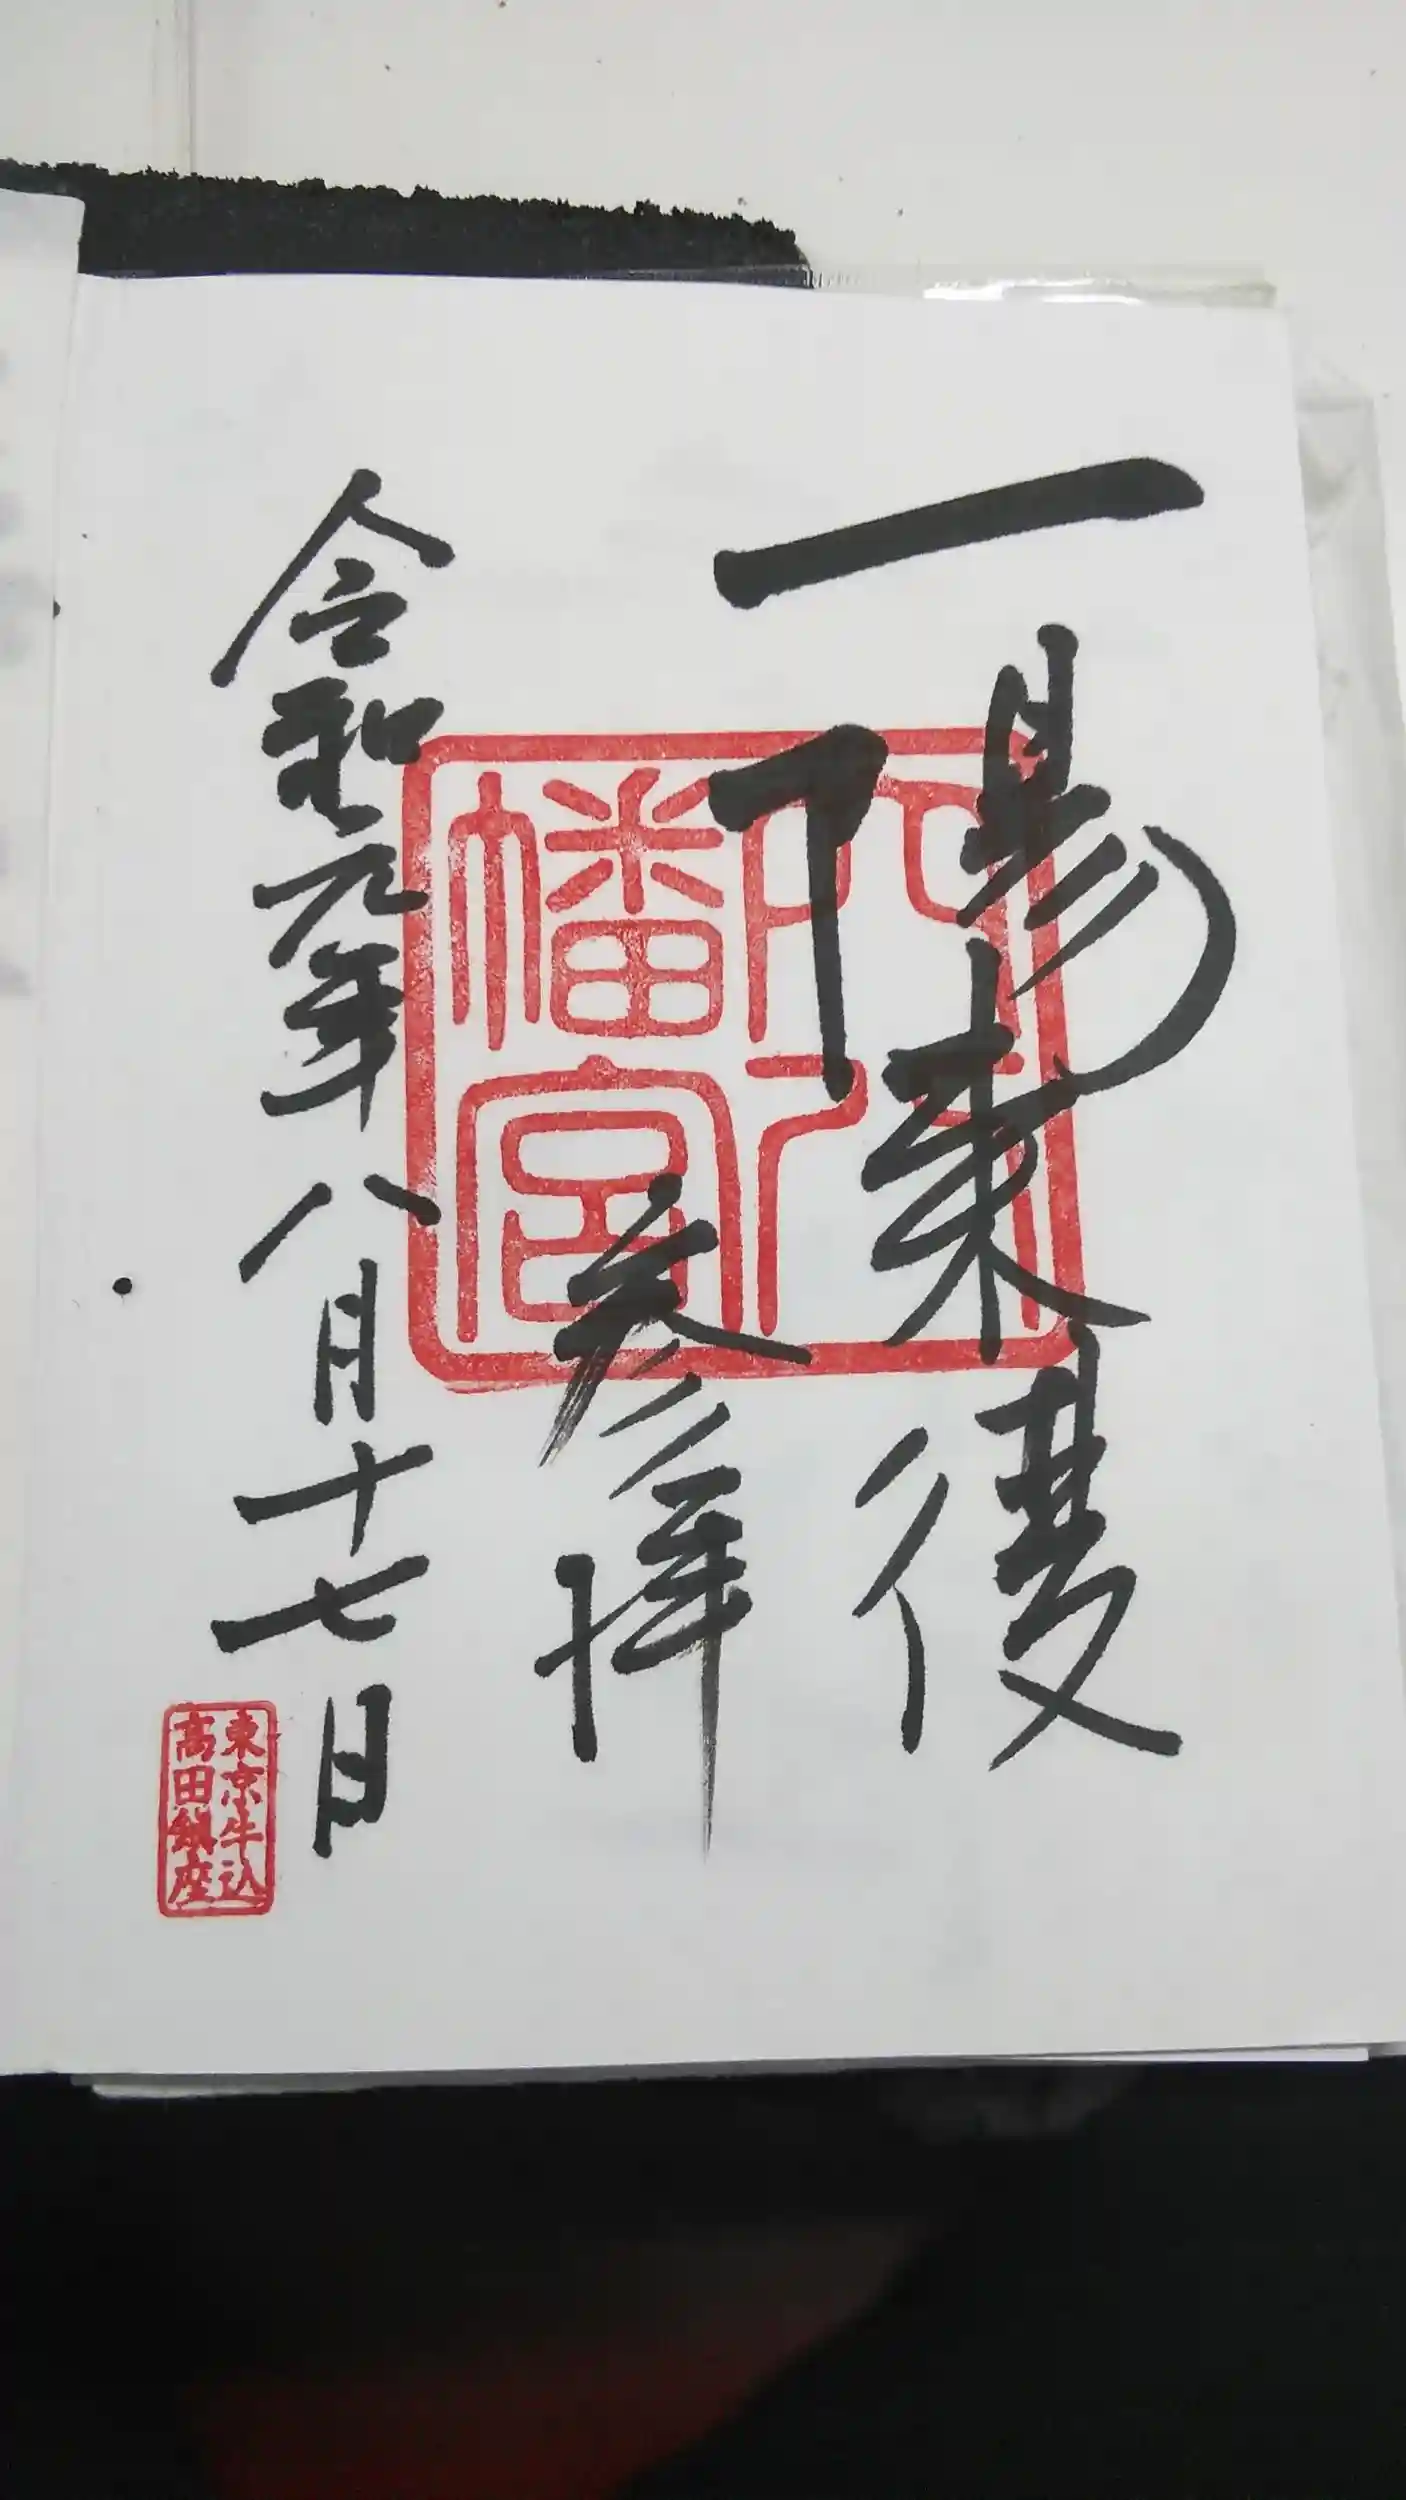 一陽来復
参拝
令和元年八月十七日
穴八
幡宮
東京牛込
高田鎮座